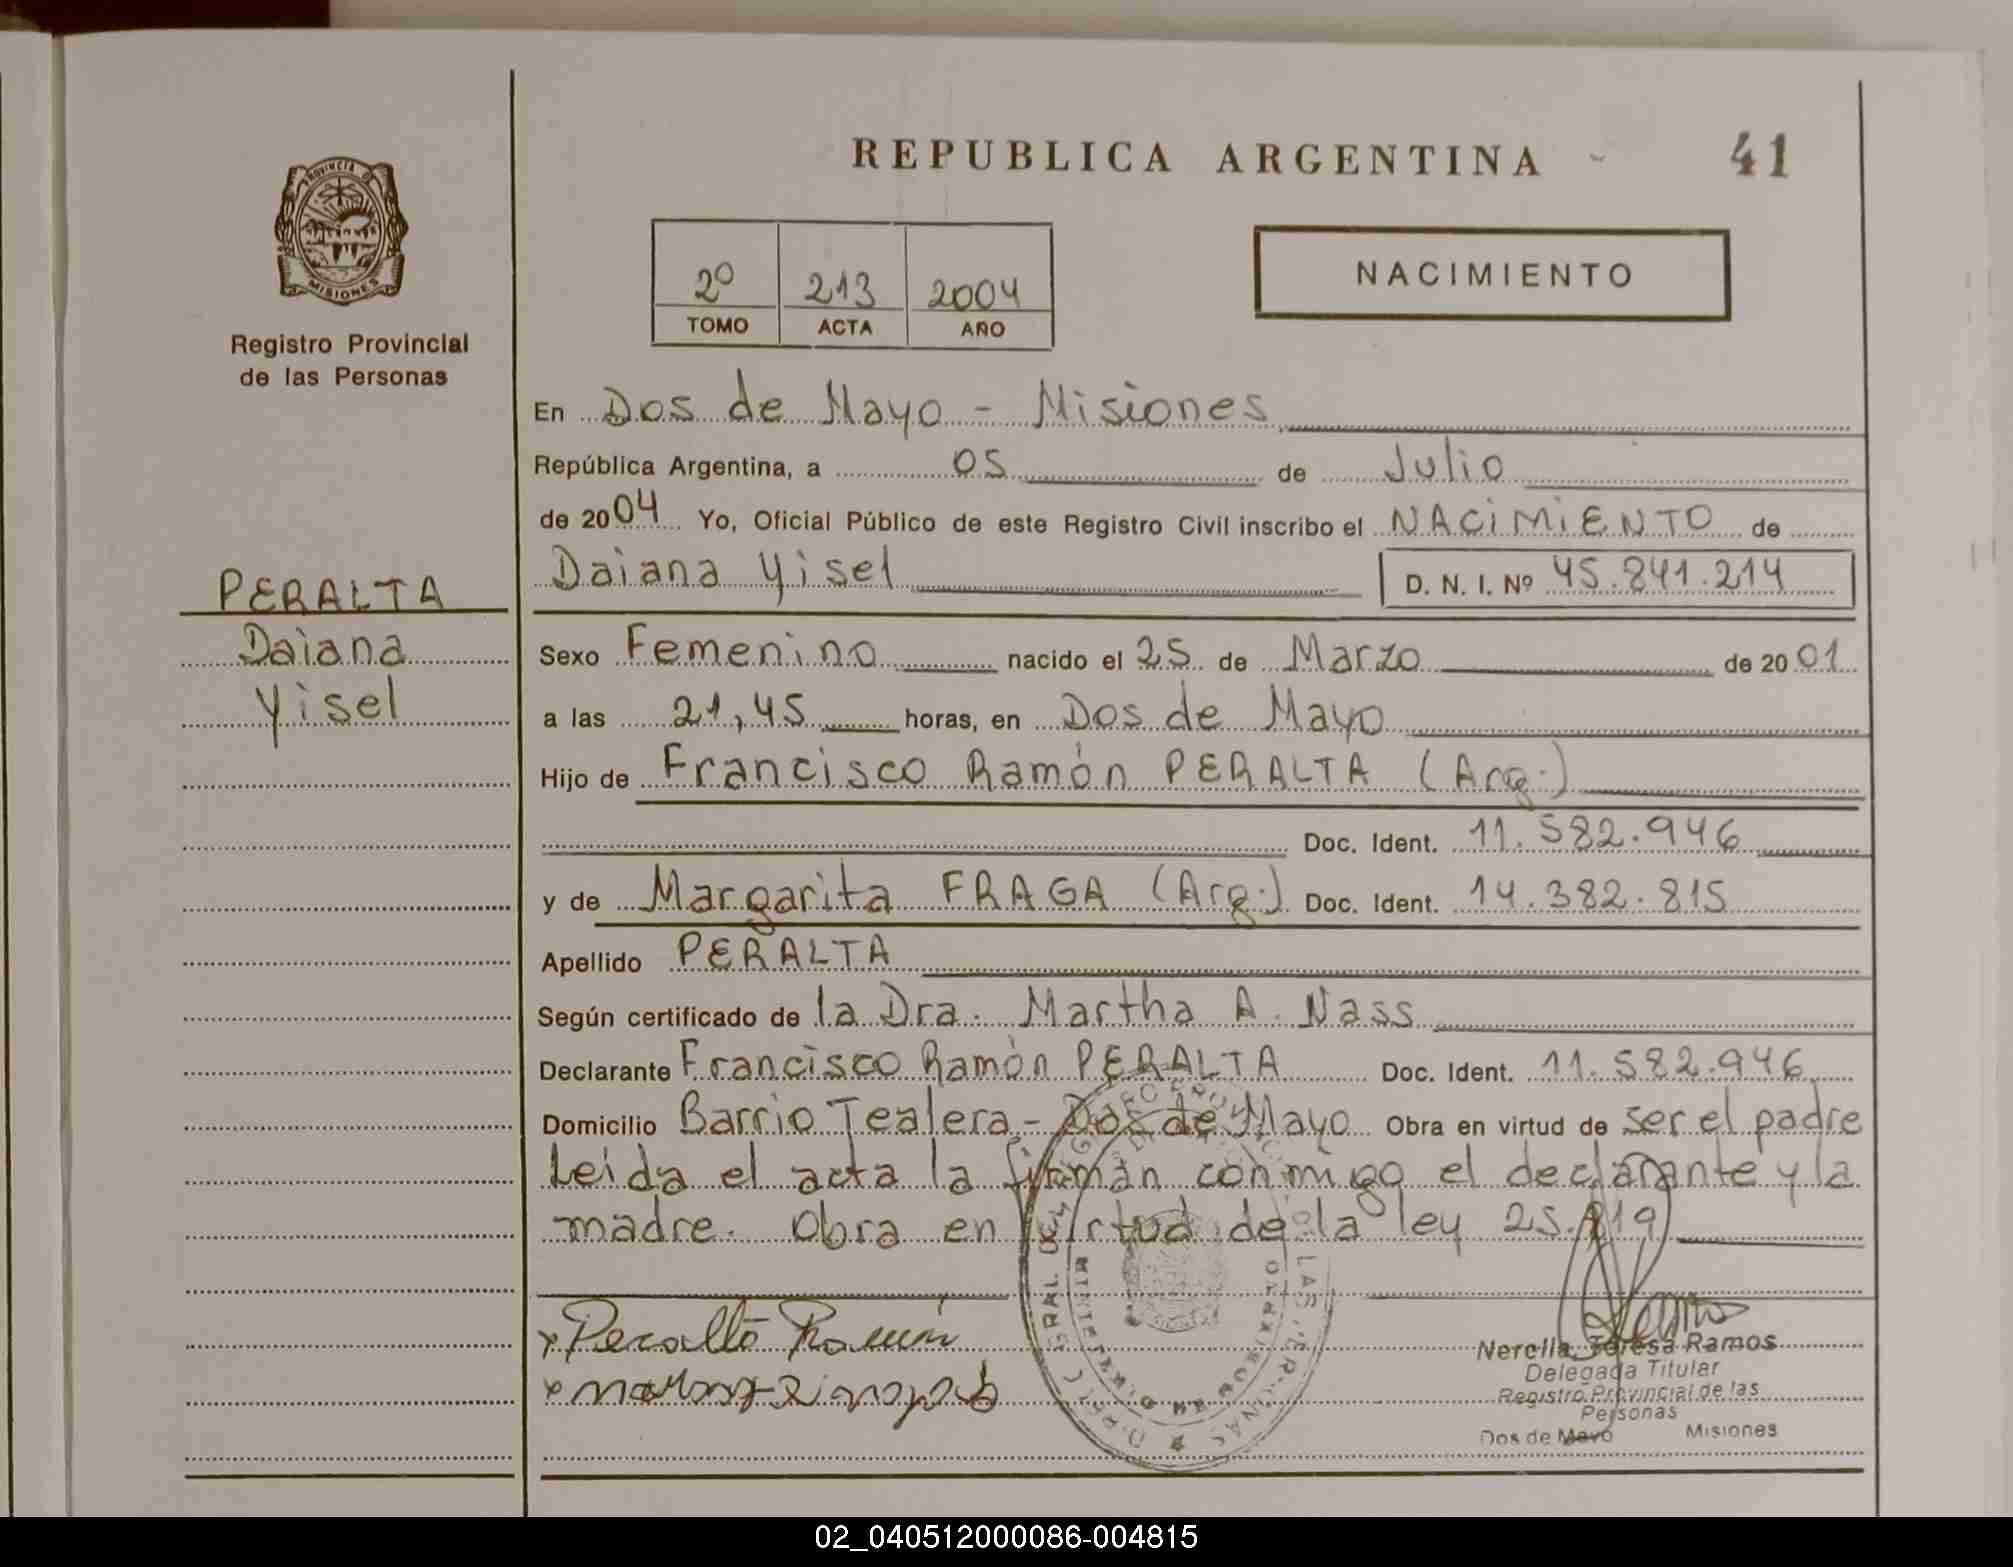 REPUBLICA ARGENTINA
41
PROVINCIA DE
MISIONES
Registro Provincial
de las Personas
2º 213 2004
TOMO ACTA AÑO
NACIMIENTO
En Dos de Mayo - Misiones
República Argentina, a 05 de Julio
de 2004 Yo, Oficial Público de este Registro Civil inscribo el NACIMIENTO de
Daiana Yisel D. N. I. Nº 45.841.214
PERALTA
Daiana
Yisel
Sexo Femenino nacido el 25 de Marzo de 2001
a las 21,45 horas, en Dos de Mayo
Hijo de Francisco Ramón PERALTA (Arg.)
Doc. Ident. 11.582.946
y de Margarita FRAGA (Arg.) Doc. Ident. 14.382.815
Apellido PERALTA
Según certificado de la Dra. Martha A. Nass
Declarante Francisco Ramón PERALTA Doc. Ident. 11.582.946
Domicilio Barrio Tealera - Dos de Mayo Obra en virtud de ser el padre
Leida el acta la firman conmigo el declarante y la
madre. Obra en virtud de la ley 25.819
x Peralta Ramón
Nerella Teresa Ramos
Delegada Titular
Registro Provincial de las
Personas
Dos de Mayo Misiones
02_040512000086-004815